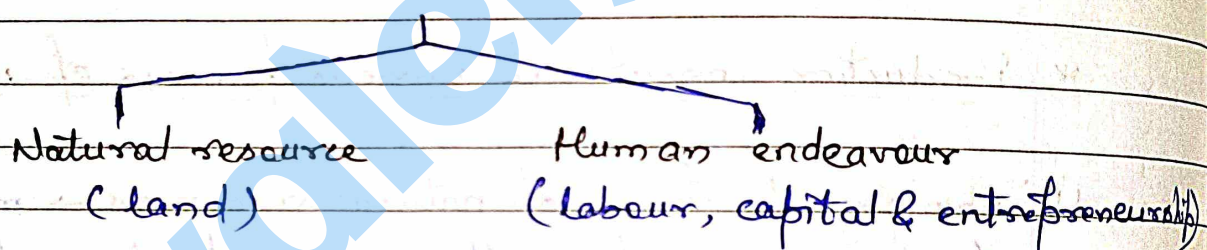 Natural resource Human endeavour
(land) (labour, capital & entrepreneurship)